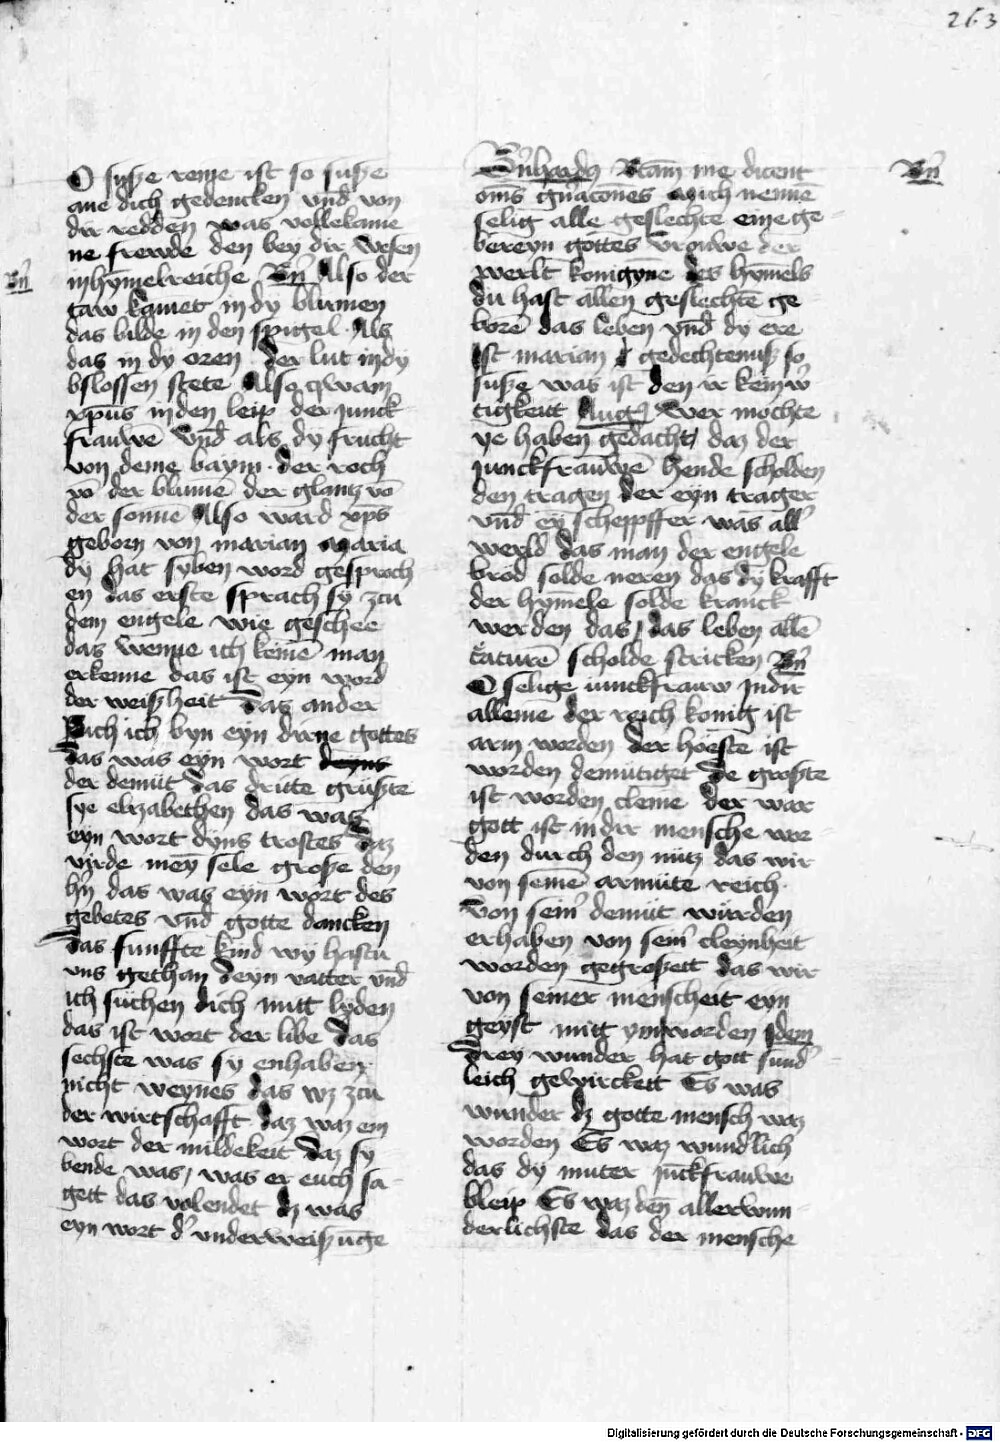 263
O susze reine ist so susze
ane dich gedencken vnd von
dir redden was vollekame
ne frewde den bey dir wesen
Bn̄
inhymelreiche Bn̄ Also der
taw kamet in dy blumen
das bilde in den spigel · Als
das in dy oren der lut in dy
bslossen stete Also qwam
xpūs in den leip der junck
frauwē vnd als dy frucht
von deme baym · der roch
vō der blumē der glantz vō
der sonne Also ward xp̄s
geborn von marian Maria
dy hat syben word gesproch
en das erste sprach sy zcu
dem engele wie geschee
das wenne ich keinē man
erkenne das ist eyn word
der weiszheit Das ander
Sich ich byn eyn dirne gottes
Das was eyn wort
der demut das dritte gruszte
sye elizabethen das was
eyn wort dyns trostes Daz
virde mey̅ sele grosze den
hn̄ das was eyn wort des
gebetes vnd gotte dancken
Das funffte kind wy hastu
vns gethan deyn vatter vnd
ich suchen dich mitt lyden
das ist wort der libe Das
sechste was sy enhaben
nicht weynes das wz zcu
der wirtschafft daz waz ein
wort der mildekeit Daz sy
bende was, was er euch sa-
gett das volendet dz was
eyn wort d' underweiszūge
Bn̄
Bern̄hardus Btam me dicent
om̄s gn̄acōnes Mich nennē
selig alle geslechte eine ge-
bereyn gottes vrouwe der
werlt konigyne des hymels
du hast allen geslechtē ge
borē das leben vnd dy ere
Ist marian gedechtenusz so
susze was ist den ir keinw'
tigkeitt Aug9 Wer mochte
ye haben gedacht, daz der
junckfrauwē hende scholden
den tragen der eyn trager
vnd ey̅ scheppffer was all'
werld das man der engele
brod solde neren das dy krafft
der hymele solde kranck
werden das, das leben allē
c̄aturē scholde stricken Bn̄
O selige iunckfraw In dir
alleine der reich konig ist
arm worden der hoeste ist
worden demutiget De groszte
ist worden cleine der war
gott ist in dir mensche wor
den durch den nutz das wir
von seinē armute reich ·
Von sein' demut wurden
erhaben von sein' cleynheit
worden gegroszett das wir
von seiner menscheit eyn
geyst mitt ym worden Idem
Drey wunder hat gott sund'
leich gewirckett Es was
wunder dz gotte mensch waz
worden Es waz wundlich
das dy muter jūckfrauwe
bleip Es waz den̄ allerwun
derlichste das der mensche
Digitalisierung gefördert durch die Deutsche Forschungsgemeinschaft - DFG